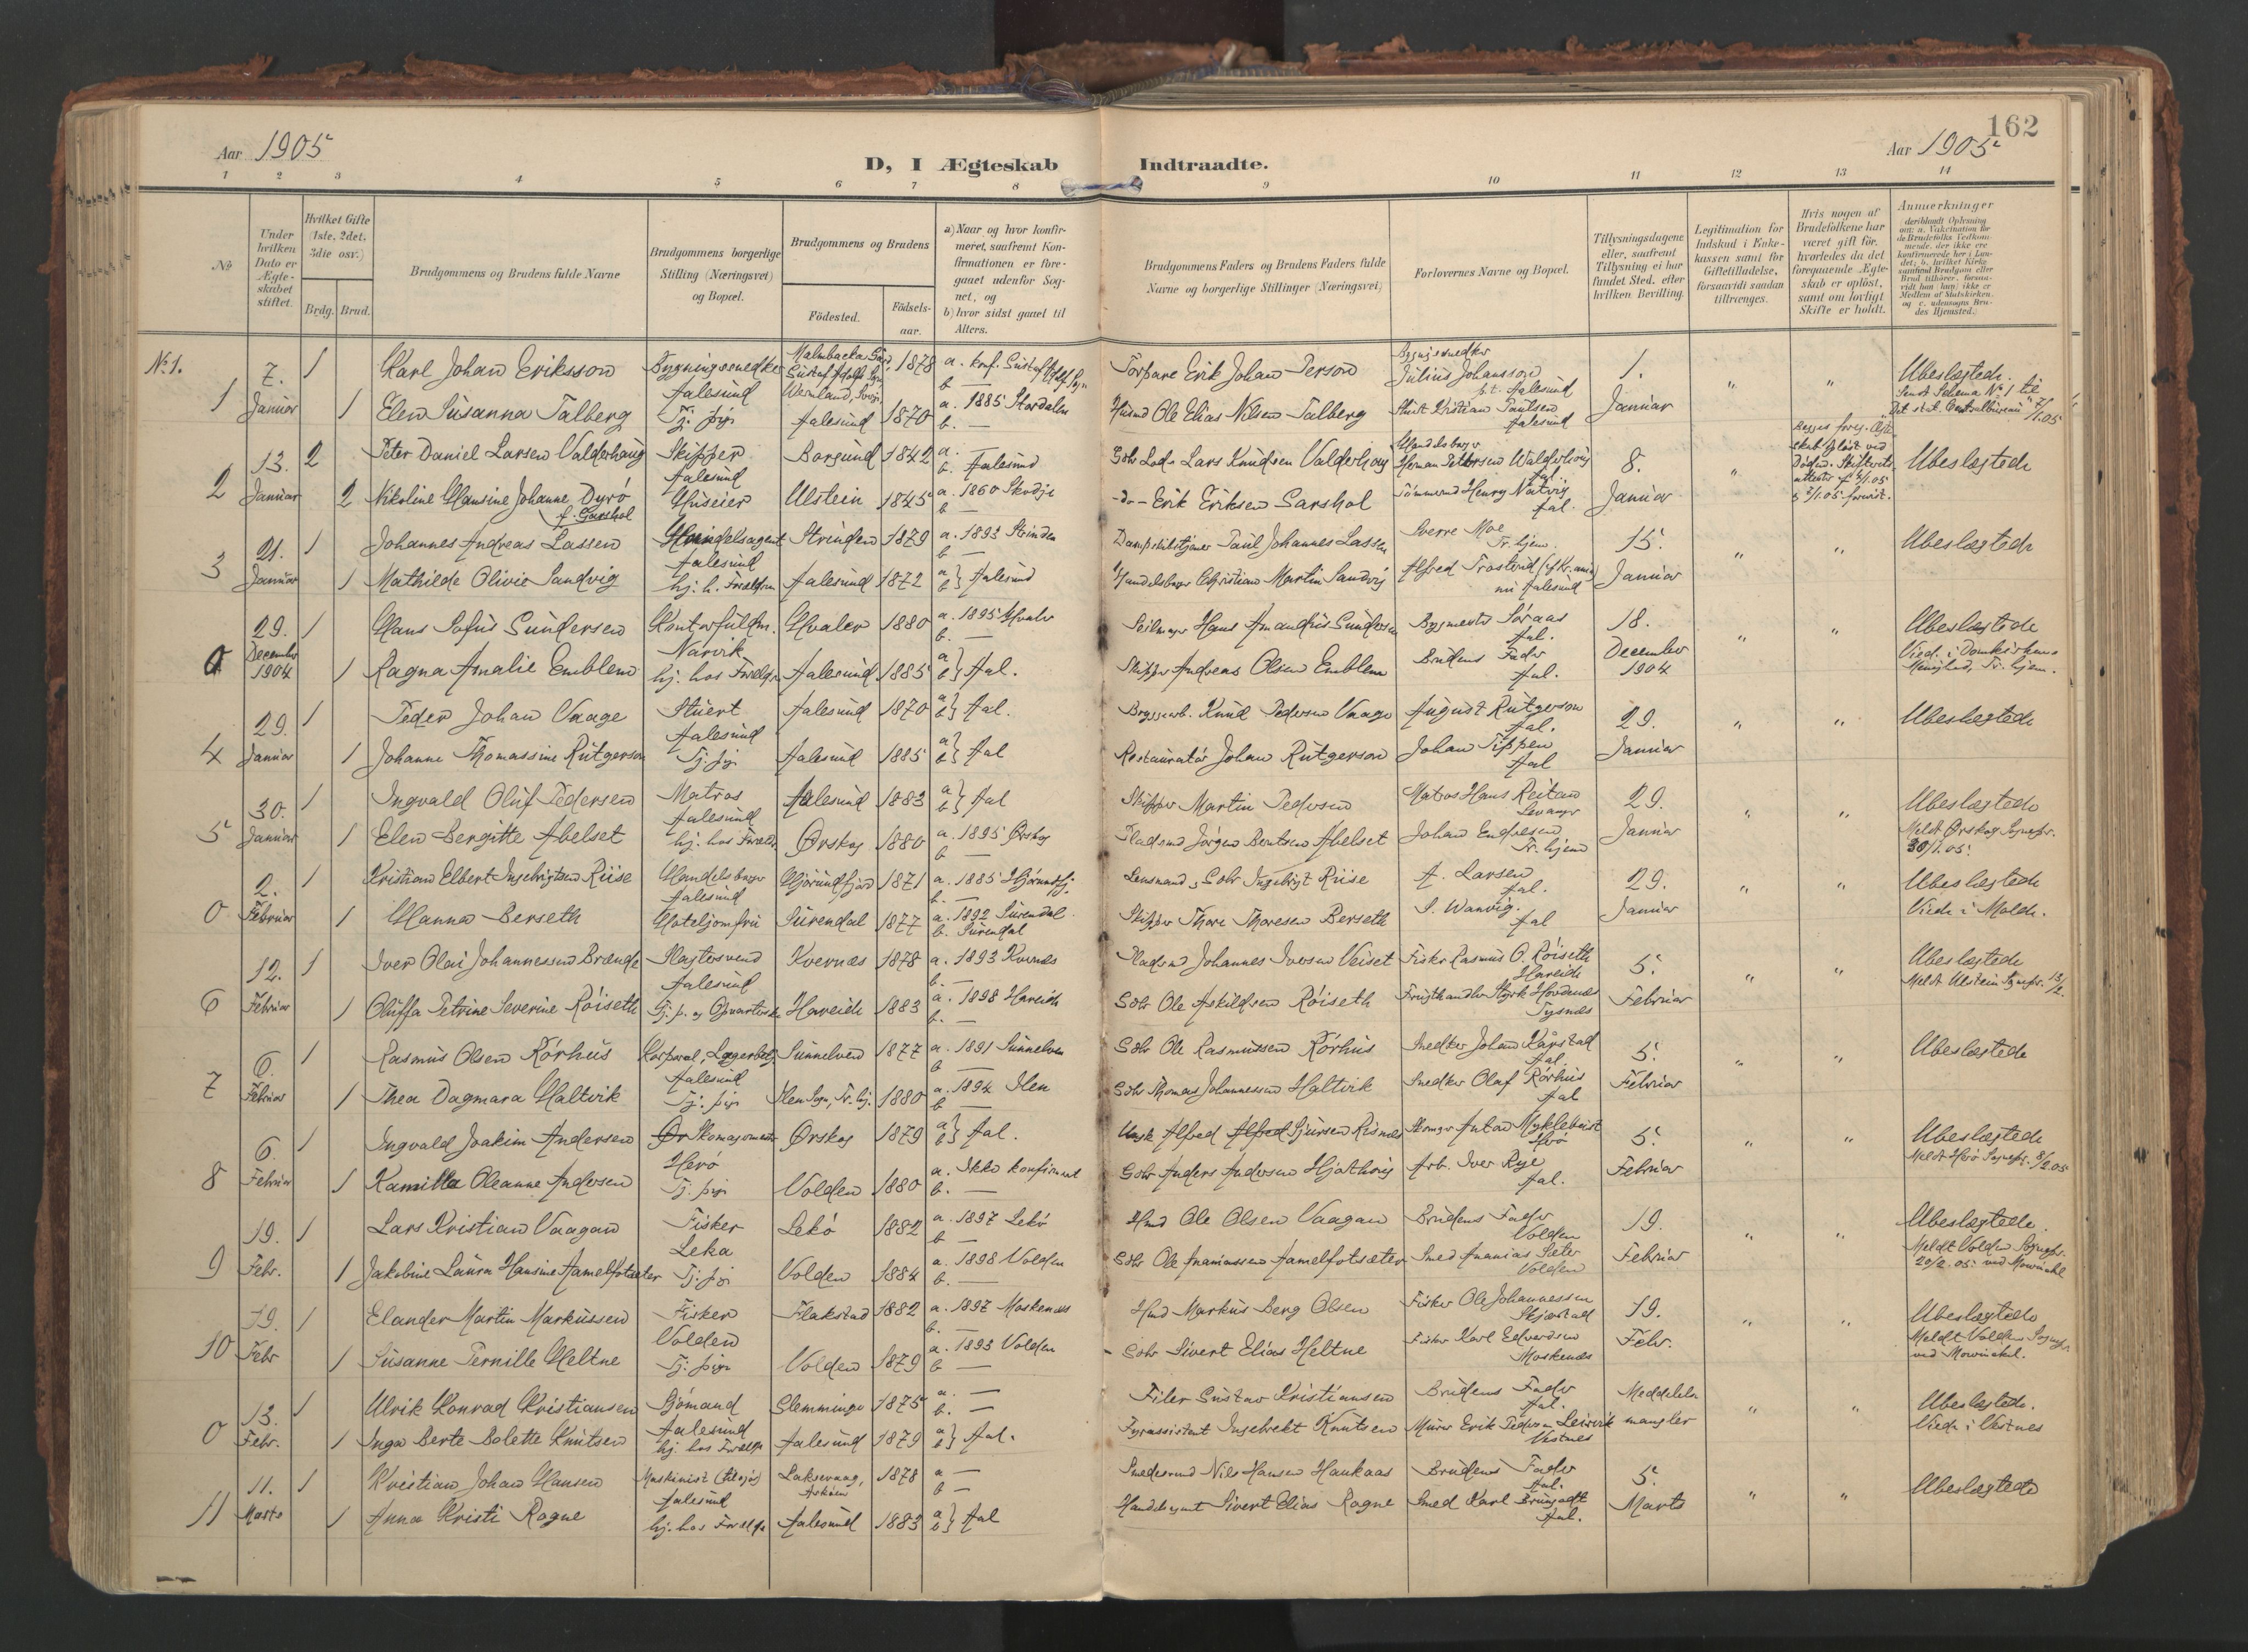 162
Aar 1905
D, I Ægteskab Indtraadte.
Aar 1905
1 2 3 4 5 6 7 8 9 10 11 12 13 14
№
Under hvilken Dato er Ægteskabet stiftet.
Hvilket Gifte (1ste, 2det, 3die osv.)
Brdg. Brud.
Brudgommens og Brudens fulde Navne
Brudgommens borgerlige Stilling (Næringsvei) og Bopæl.
Brudgommens og Brudens
Fødested.
Fødselsaar.
a) Naar og hvor konfirmeret, saafremt Konfirmationen er foregaaet udenfor Sognet, og
b) hvor sidst gaaet til Alters.
Brudgommens Faders og Brudens Faders fulde Navne og borgerlige Stillinger (Næringsvei)
Forlovernes Navne og Bopæl.
Tillysningsdagene eller, saafremt Tillysning ei har fundet Sted, efter hvilken Bevilling.
Legitimation for Indskud i Enkekassen samt for Giftetilladelse, forsaavidt saadan tiltrænges.
Hvis nogen af Brudefolkene har været gift før, hvorledes da det foregaaende Ægteskab er opløst, samt om lovligt Skifte er holdt.
Anmærkninger
№ 1.
1 7. Januar 1 Karl Johan Eriksson Bygningssnedker Aalesund 1878 a. konf. Gustaf Adolf b — Torpare Erik Johan Person Julius Johansson p.t. Aalesund 1. Januar " " Ubeslægtede.
1 Elen Susanna Talberg Tj. pige Aalesund 1870 a. 1885 Stordalen b. — Husmd Ole Elias Nilsen Talberg Kristian Paulsen Aalesund
2 13. Januar 2 Peter Daniel Larsen Valderhaug Skipper Aalesund Borgund 1842 a. — b. Aalesund Lars Knudsen Valderhaug 8. Januar " Ubeslægtede
2 Nikoline Hansine Johanne Dyrø f. Garshol Huseier Ulstein 1845 a. 1860 Skodje b — -do- Erik Eriksen Garshol Henry Natvig Aal.
3 21. Januar 1 Johannes Andreas Lassen Handelsagent Aalesund Strinden 1879 a. 1893 Strinden b — Paul Johannes Lassen Sverre Moe Tr. hjem. 15. Januar " " Ubeslægtede
1 Mathilde Olivie Sandvig hj. h. Forældrene Aalesund 1872 a b} Aalesund Handelsborger Christian Martin Sandvig Alfred nu Aalesund
0 29. December 1904 1 Hans Sofus Gundersen Kontorfuldm. Narvik Hvaler 1880 a. 1895 Hvaler b. — Hans Amandus Gundersen Bygmester Søraas Aal. 18. December 1904 " " Ubeslægtede Viede i Domkirkens Menighed, Tr. hjem.
1 Ragna Amalie Emblem hj. hos Forældre Aalesund 1885 a b} Aal. Skipper Andreas Olsen Emblem Brudens Fader Aal.
4 29. Januar 1 Peder Johan Vaage Stuert Aalesund Aalesund 1870 a b} Aal. Bryggearb. Knud Pedersen Vaage August Rutgerson Aal. 29. Januar " " Ubeslægtede
1 Johanne Thomassine Rutgerson Tj. pige Aalesund 1885 a b} Aal Restauratør Johan Rutgerson Johan Tippen Aal
5 30. Januar 1 Ingvald Oluf Pedersen Matros Aalesund Aalesund 1883 a b} Aal Skipper Martin Pedersen Matros Hans Reitan Levanger 29. Januar " " Ubeslægtede Meldt Ørskog Sognepr. 30/1.05.
1 Elen Bergitte Abelset hj. hos Forældre Ørskog 1880 a. 1895 Ørskog b — Pladsmd Jørgen Berntsen Abelset Johan Endresen Tr. hjem
0 2. Februar 1 Kristian Elbert Ingebrigtsen Riise Handelsborger Aalesund Hjørundfjord 1871 a. 1885 Hjørundfj. b. — Lensmand, Gbr Ingebrigt Riise A. Larsen Aal. 29. Januar " " Ubeslægtede Viede i Molde.
1 Hanna Berseth Hoteljomfru Surendal 1877 a. 1892 Surendal b. Surendal Skipper Thore Thoresen Berseth S. Wanvig. Aal
6 12. Februar 1 Iver Olai Johannessen Brænde Slagtersvend Aalesund Kvernæs 1878 a. 1893 Kvernæs b. — Pladsmd Johannes Iversen Veiset Fisker Rasmus O. Røiseth Hareide 5. Februar " " Ubeslægtede Meldt Ulstein Sognepr. 13/2.
1 Oluffa Petrine Severine Røiseth Tj. p. Hareide 1883 a. 1898 Hareide b. — Gbr Ole Askildsen Røiseth Frugthandler Styrk Hovdenes Tysnes
7 6. Februar 1 Rasmus Olsen Rørhus Korporal, Lagerbetj. Aalesund Sunnelven 1877 a. 1891 Sunnelven b — Gbr Ole Rasmussen Rørhus Snedker Johan Kårstad Aal. 5. Februar " " Ubeslægtede
1 Thea Dagmara Haltvik Tj. pige Ilen Sogn, Tr. hj. 1880 a. 1894 Ilen b — Gbr Thomas Johannessen Haltvik Snedker Olaf Rørhus Aal
8 6. Februar 1 Ingvald Joakim Andersen Skomagermester Herø Ørskog 1879 a b} Aal. Alfred Sjursen Risnes Anton Myklebust Herø 5. Februar " " Ubeslægtede Meldt Herø Sognepr. 8/2.05
1 Kamilla Oleanne Andersen Tj. pige Volden 1880 a. Ikke konfirmert b. — Gbr Anders Andersen Hjolthaug Arb. Iver Rye Aal.
9 19. Febr. 1 Lars Kristian Vaagan Fisker Leka Lekø 1882 a. 1897 Lekø b — Hmd Ole Olsen Vaagan Brudens Fader Volden 19. Februar " " Ubeslægtede. Meldt Volden Sognepr. 20/2.05 ved Mowinckel
1 Jakobine Laura Hansine Aamelfotsæter Tj. pige Volden 1884 a. 1898 Volden b. — Gbr Ole Ananiassen Aamelfotsæter Smed Ananias Sæter Volden
10 19. Febr 1 Elander Martin Markussen Fisker Volden Flakstad 1882 a. 1897 Moskenæs b. — Hmd Markus Berg Olsen Fisker Ole Johannessen Skjærstad 19. Febr. " " Ubeslægtede Meldt Volden Sognepr. ved Mowinckel.
1 Susanne Pernille Heltne Tj. pige Volden 1879 a. 1893 Volden b — Gbr Sivert Elias Heltne Fisker Karl Edvardsen Moskenæs
0 13. Febr. 1 Ulrik Konrad Kristiansen Sjømand Aalesund Slemminge 1875 a. — b. — Filer Gustav Kristiansen Brudens Fader Aal. Meddelelse mangler " " Ubeslægtede. Viede i Vestnes
1 Inga Berte Bolette Knutsen hj. hos Forældre Aalesund 1879 a b} Aal. Fyrassistent Ingebrekt Knutsen Murer Erik Pedersen Leirvik Vestnes
11 11. Marts 1 Kristian Johan Hansen Maskinist (tilsjøs) Aalesund Laksevaag, Askøen 1878 a — b — Smedesvend Nils Hansen Haukaas Brudens Fader Aal. 5. Marts " " Ubeslægtede
1 Anna Kristi Ragne hj. hos Forældre Aalesund 1883 a b} Aal Handelsagent Sivert Elias Ragne Smed Karl Brungodt Aal.